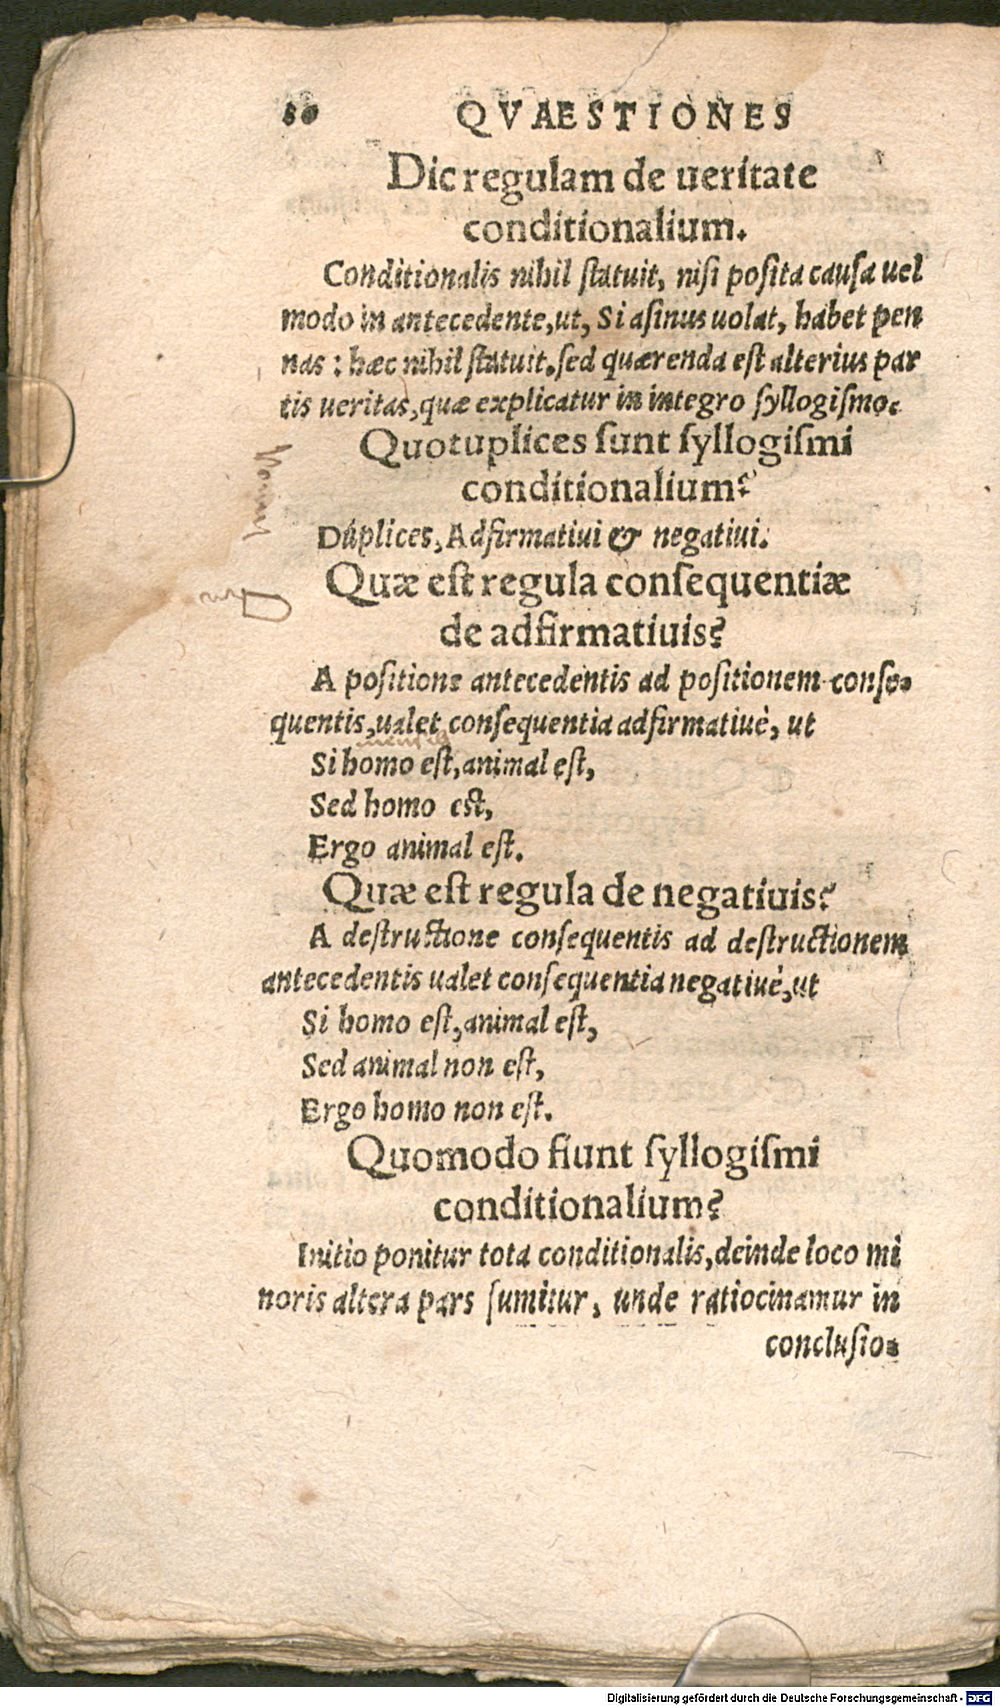 80 QVAESTIONES
Dic regulam de ueritate
conditionalium.
Conditionalis nihil ſtatuit, niſi poſita cauſa uel
modo in antecedente, ut, Si aſinus uolat, habet pen
nas: hæc nihil ſtatuit. ſed quærenda eſt alterius par
tis ueritas, quæ explicatur in integro ſyllogiſmo.
Quotuplices ſunt ſyllogiſmi
conditionalium?
Dúplices, Adfirmatiui & negatiui.
Quæ eſt regula conſequentiæ
de adfirmatiuis?
A poſitione antecedentis ad poſitionem conſe-
quentis, ualet conſequentia adfirmatiuè, ut
Si homo eſt, animal eſt,
Sed homo eſt,
Ergo animal eſt.
Quæ eſt regula de negatiuis?
A deſtructione conſequentis ad deſtructionem
antecedentis ualet conſequentia negatiuè, ut
Si homo eſt, animal eſt,
Sed animal non eſt,
Ergo homo non eſt.
Quomodo fiunt ſyllogiſmi
conditionalium?
Initio ponitur tota conditionalis, deinde loco mi
noris altera pars ſumitur, unde ratiocinamur in
concluſio-
Digitalisierung gefördert durch die Deutsche Forschungsgemeinschaft - DFG